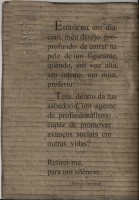 Estava eu, um dia,
com meu desejo
profundo de entrar na
pele de um figurante,
quando, em voz alta,
seu íntimo, em mim,
proferiu:
Tens, dentro da tua
sabedoria, um agente
de profissionalismo
capaz de promover
avanços sociais em
outras vidas?
Retirei-me,
para um silêncio.